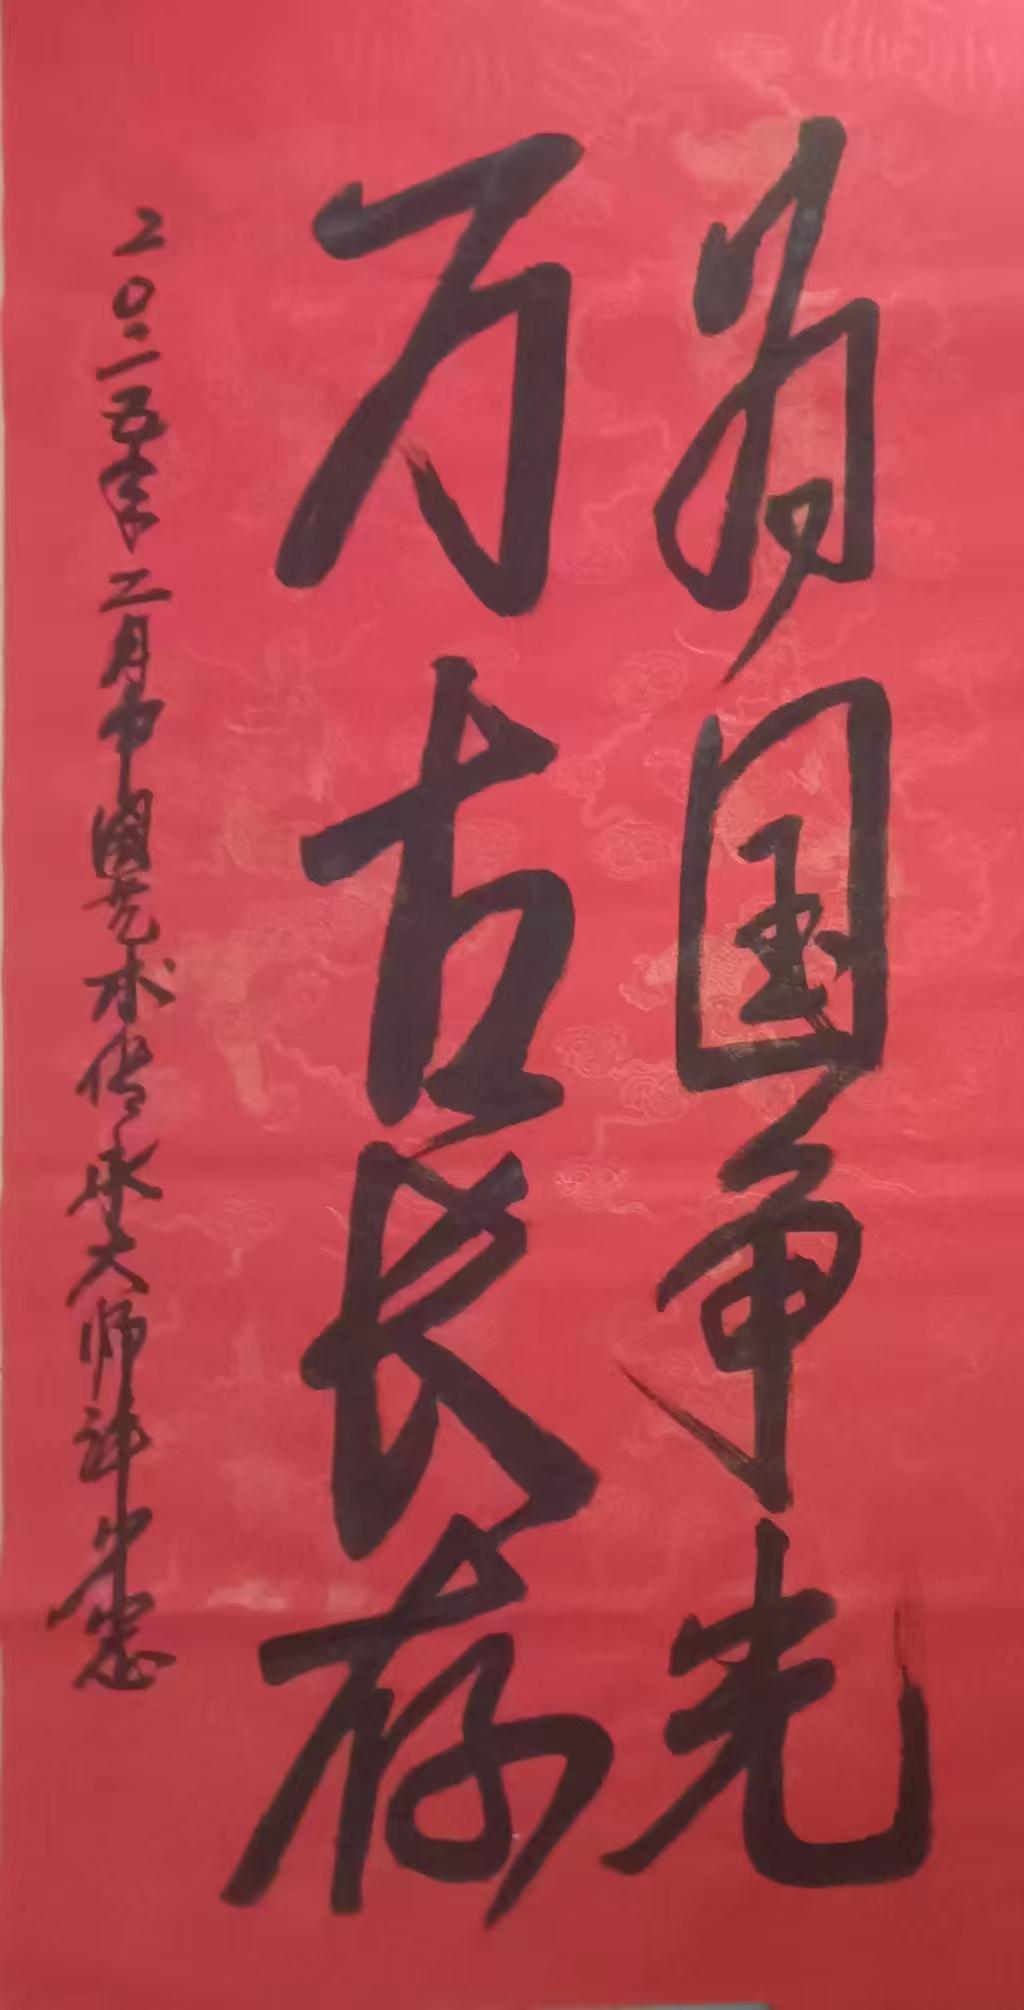 为国争光
万古长存
二〇二五年二月中国艺术传承大师许中忠